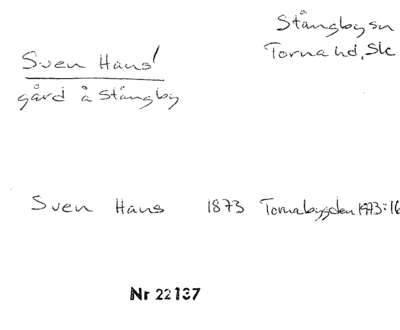 Stångby sn
Torna hd, Sk
Sven Hans'
gård å Stångby
Sven Hans 1873 Tornabygden 1973:16
Nr 22137